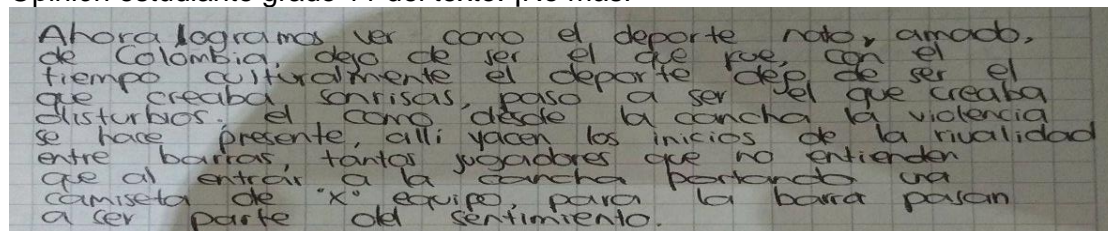 Ahora logramos ver como el deporte nato, amado,
de Colombia, dejo de ser el que fue, con el
tiempo culturalmente el deporte dejo de ser el
que creaba sonrisas, paso a ser el que creaba
disturbios. el como desde la cancha la violencia
se hace presente, alli yacen los inicios de la rivalidad
entre barras, tantos jugadores que no entienden
que al entrar a la cancha portando una
camiseta de "x" equipo, para la barra pasan
a ser parte del sentimiento.